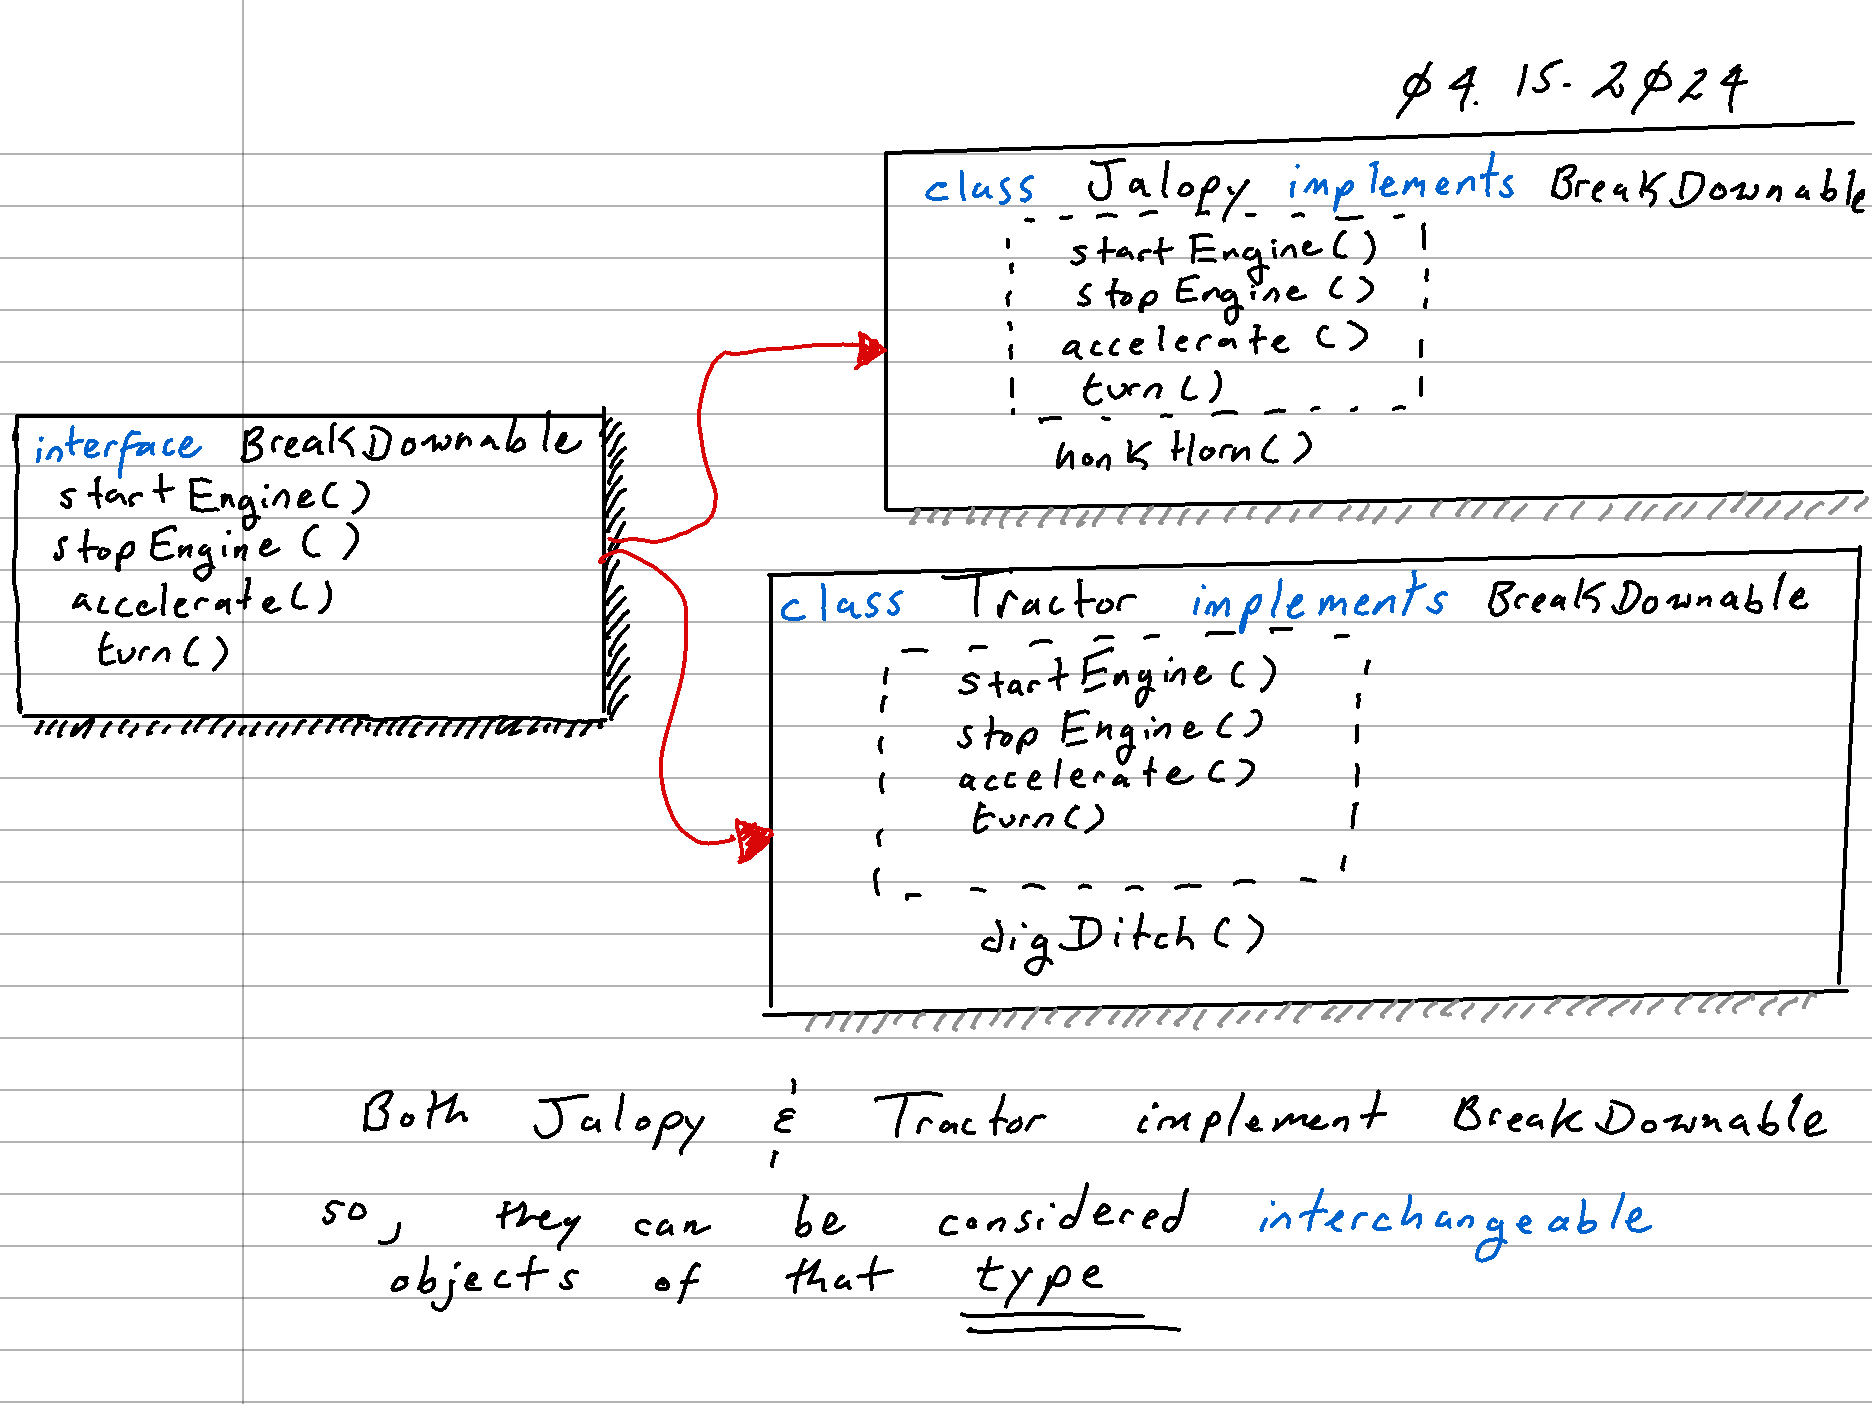 04.15.2024
class Jalopy implements BreakDownable
startEngine()
stopEngine()
accelerate()
turn()
honkHorn()
interface BreakDownable
startEngine()
stopEngine()
accelerate()
turn()
class Tractor implements BreakDownable
startEngine()
stopEngine()
accelerate()
turn()
digDitch()
Both Jalopy & Tractor implement BreakDownable
so, they can be considered interchangeable
objects of that type